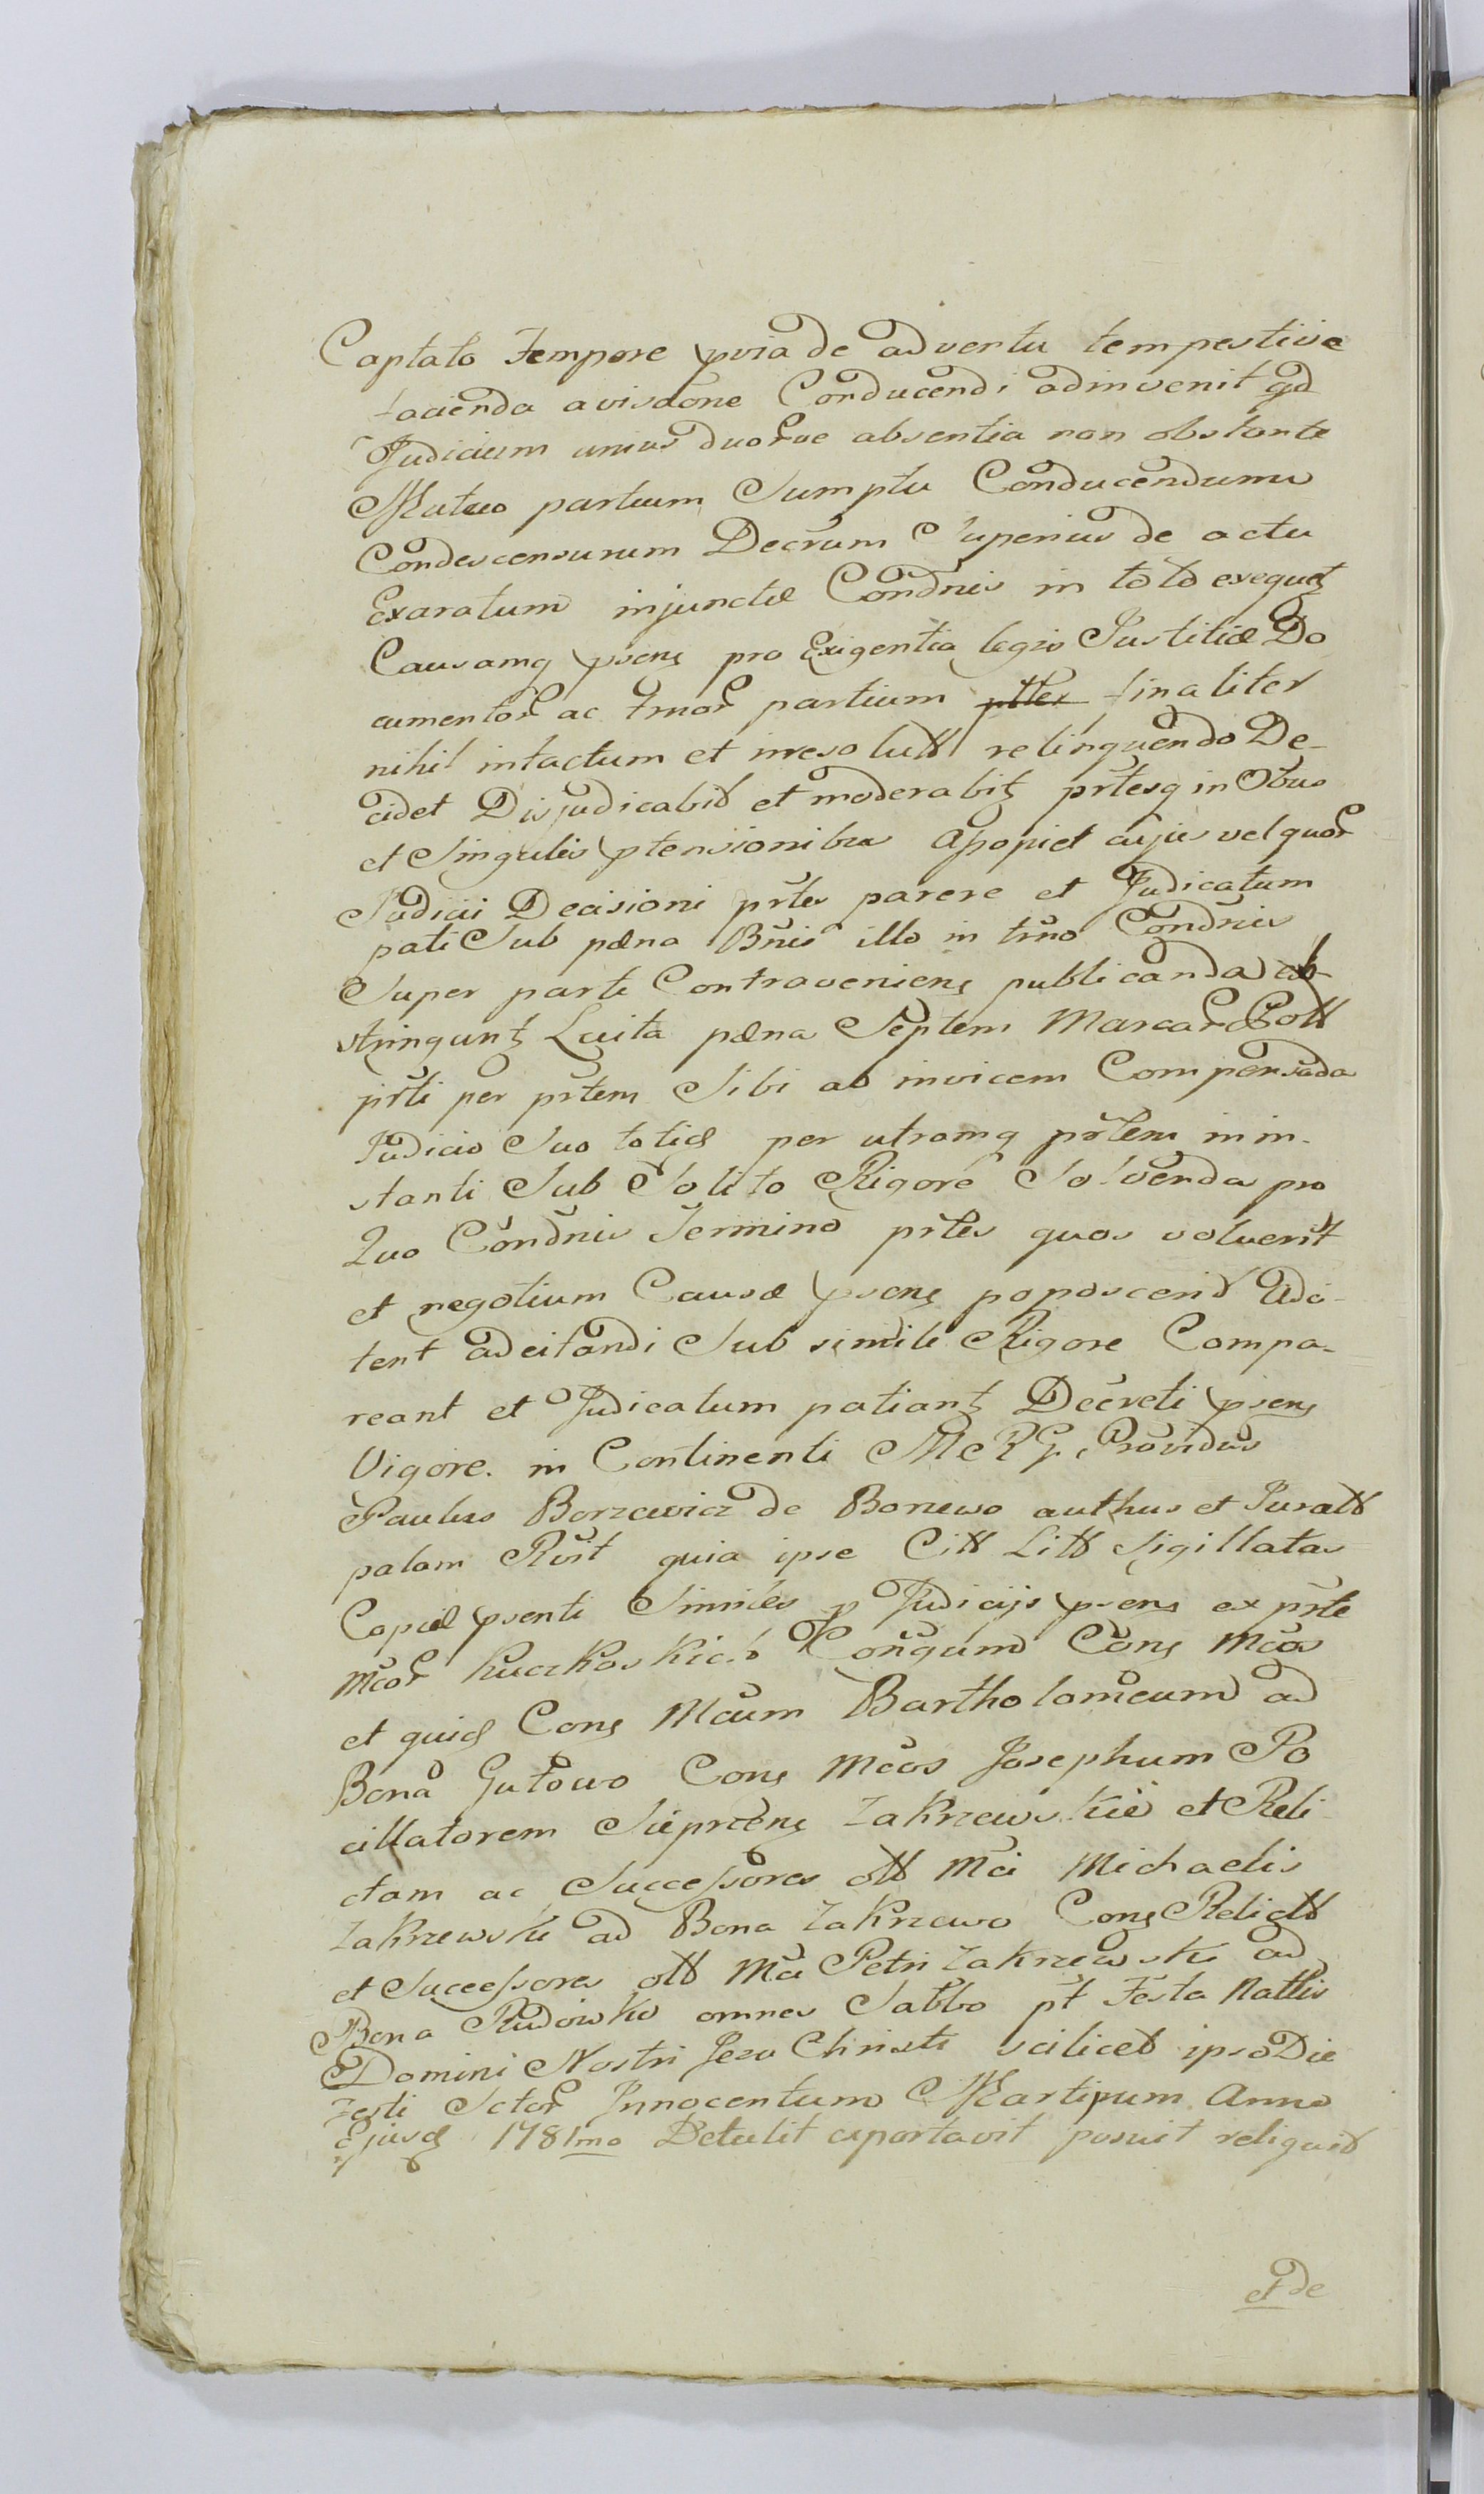 Captato tempore pvia de adventu tempestive
facienda avisaone Conducendi adinvenit qd
Judicium unius duorve absentia non obstante
Mutuo partium Sumptu Conducendum
Condescensurum Decrum Superius de actu
Exaratum injunctæ Condnis in toto exequet
Causamq psens pro Exigentia legis Justitiæ Do
cumentor ac Jrnor partium ptter finaliter
nihil intactum et irresolutt relinquendo De-
cidet Disjudicabit et moderabit prtesq in Obus
et Singulis ptensionibus Apopiet cujus vel quor
Judicii Decisioni prtes parere et Judicatum
pati Sub pæna Bnis illo in trno Condnis
Super parte Contraveniens publicanda ob-
stringunt Luita pæna Septem Marcar Poll
prti per prtem Sibi ab invicem Compensada
Judicio Suo totid per utramq prtem in in-
stanti Sub Solito Rigore Solvenda pro
Quo Condnis Termino prtes quos voluerit
et negotium Causæ psens poposcerit Adci-
tent adcitandi Sub simili Rigore Compa-
reant et Judicatum patiant Decreti psens
Vigore. in Continenti M R G. Providus
Paulus Borzewicz de Boniewo authus et Juratt
palam Rcit quia ipse Citt Litt Sigillatas
Copiæ psenti Similes p Judicijs psens ex prte
Mcor Kuczkoskich Congum Cons Mcos
et quid Cons Mcum Bartholomeum ad
Bona Gutowo Cons Mcos Josephum Po
cillatorem Sieprcens Zakrzewskie et Reli
ctam ac Successores ott Mci Michaelis
Zakrzewski ad Bona Zakrzewo Cons Relictt
et Successores ott Mci Petri Zakrzewski ad
Bona Rudowsko omnes Sabbo pt Festa Nattis
Domini Nostri Jesu Christi scilicet ipso Die
Festi Sctor Innocentum Martirum Anno
Ejusd 1781mo Detulit aportavit posuit reliquit
et de